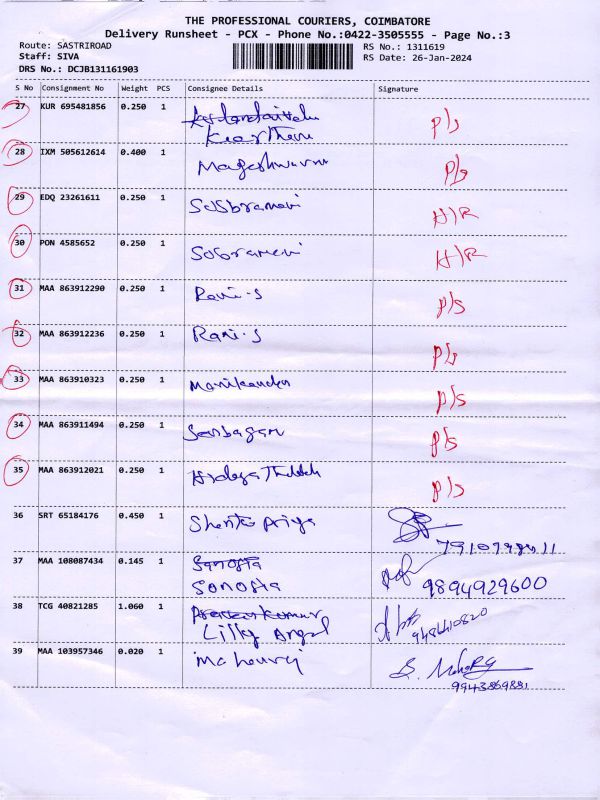 THE PROFESSIONAL COURIERS, COIMBATORE
Delivery Runsheet - PCX - Phone No.:0422-3505555 - Page No.:3
Route: SASTRIROAD
RS No.: 1311619
Staff: SIVA
RS Date: 26-Jan-2024
DRS No.: DCJB131161903
S No Consignment No Weight PCS Consignee Details Signature
27 KUR 695481856 0.250 1 P/s
28 IXM 505612614 0.400 1 Mageshwaran P/s
29 EDQ 23261611 0.250 1 H/R
30 PON 4585652 0.250 1 H/R
31 MAA 863912290 0.250 1 Rani.S P/s
32 MAA 863912236 0.250 1 Rani.S P/s
33 MAA 863910323 0.250 1 Manikandan P/s
34 MAA 863911494 0.250 1 Senbagam P/s
35 MAA 863912021 0.250 1 P/s
36 SRT 65184176 0.450 1 Shenta Priya
37 MAA 108087434 0.145 1 Sonosta
Sonosta 9894929600
38 TCG 40821285 1.060 1
Lilly Angel
39 MAA 103957346 0.020 1
9943869881